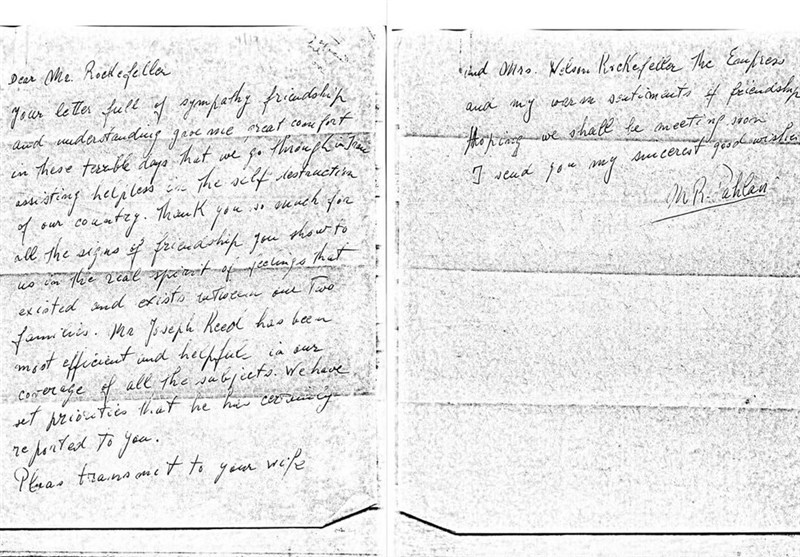 Dear Mr. Rockefeller
your letter full of sympathy friendship
and understanding gave me great comfort
in these terrible days that we go through
assisting helpless in the self destruction
of our country. Thank you so much for
all the signs of friendship you show to
us in the real spirit of feelings that
existed and exists between our two
families. Mr Joseph Reed has been
most efficient and helpful in our
coverage of all the subjects. We have
set priorities that he has certainly
reported to you.
Pleas transmit to your wife
and Mrs. Nelson Rockefeller the Empress
and my warm sentiments of friendship
Hoping we shall be meeting soon
I send you my sincerest good wishes
M R. Pahlavi